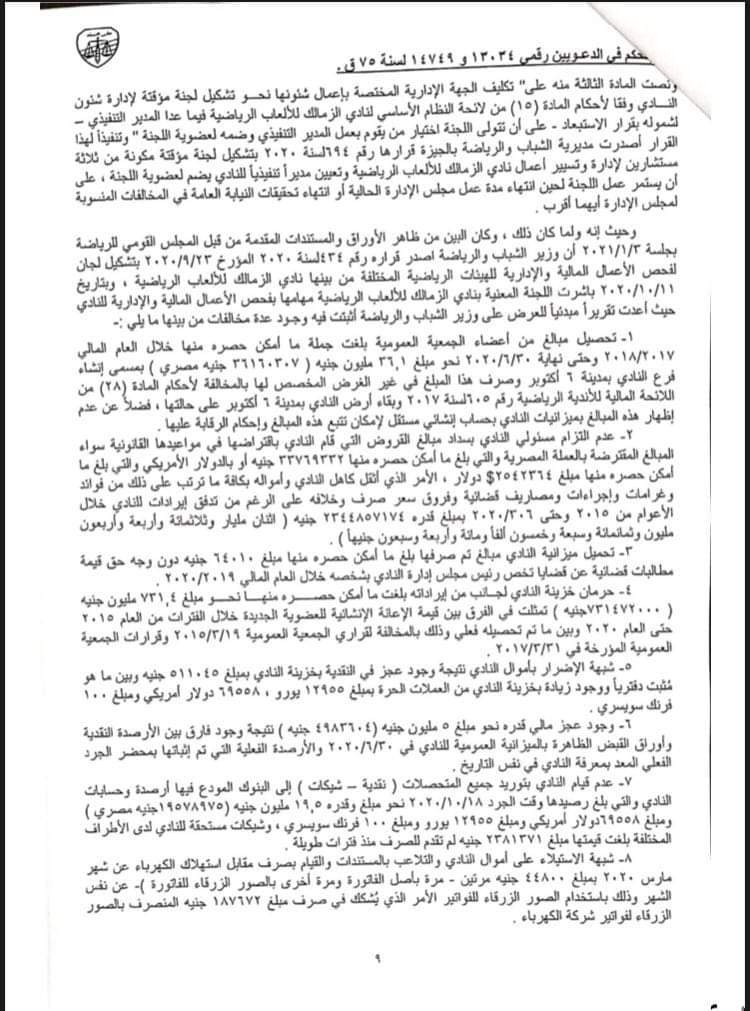 حكم في الدعويين رقمي ١٣٠٣٤ و ١٤٧٤٩ لسنة ٧٥ ق .
ونصت المادة الثالثة منه على" تكليف الجهة الإدارية المختصة بإعمال شئونها نحو تشكيل لجنة مؤقتة لإدارة شئون
النادي وفقا لأحكام المادة (١٥) من لائحة النظام الأساسي لنادي الزمالك للألعاب الرياضية فيما عدا المدير التنفيذي –
لشموله بقرار الاستبعاد – على أن تتولى اللجنة اختيار من يقوم بعمل المدير التنفيذي وضمه لعضوية اللجنة " وتنفيذاً لهذا
القرار أصدرت مديرية الشباب والرياضة بالجيزة قرارها رقم ٦٩٤لسنة ٢٠٢٠ بتشكيل لجنة مؤقتة مكونة من ثلاثة
مستشارين لإدارة وتسيير أعمال نادي الزمالك للألعاب الرياضية وتعيين مديراً تنفيذياً للنادي يضم لعضوية اللجنة ، على
أن يستمر عمل اللجنة لحين انتهاء مدة عمل مجلس الإدارة الحالية أو انتهاء تحقيقات النيابة العامة في المخالفات المنسوبة
لمجلس الإدارة أيهما أقرب .
وحيث إنه ولما كان ذلك ، وكان البين من ظاهر الأوراق والمستندات المقدمة من قبل المجلس القومي للرياضة
بجلسة ٢٠٢١/١/٣ أن وزير الشباب والرياضة اصدر قراره رقم ٤٣٤لسنة ٢٠٢٠ المؤرخ ٢٠٢٠/٩/٢٣ بتشكيل لجان
لفحص الأعمال المالية والإدارية للهيئات الرياضية المختلفة من بينها نادي الزمالك للألعاب الرياضية ، وبتاريخ
٢٠٢٠/١٠/١١ باشرت اللجنة المعنية بنادي الزمالك للألعاب الرياضية مهامها بفحص الأعمال المالية والإدارية للنادي
حيث أعدت تقريراً مبدئياً للعرض على وزير الشباب والرياضة أثبتت فيه وجود عدة مخالفات من بينها ما يلي :-
١- تحصيل مبالغ من أعضاء الجمعية العمومية بلغت جملة ما أمكن حصره منها خلال العام المالي
٢٠١٨/٢٠١٧ وحتى نهاية ٢٠٢٠/٦/٣٠ نحو مبلغ ٣٦,١ مليون جنيه ( ٣٦١٦٠٣٠٧ جنيه مصري ) بمسمى إنشاء
فرع النادي بمدينة ٦ أكتوبر وصرف هذا المبلغ في غير الغرض المخصص لها بالمخالفة لأحكام المادة (٢٨) من
اللائحة المالية للأندية الرياضية رقم ٦٠٥لسنة ٢٠١٧ وبقاء أرض النادي بمدينة ٦ أكتوبر على حالتها ، فضلاً عن عدم
إظهار هذه المبالغ بميزانيات النادي بحساب إنشائي مستقل لإمكان تتبع هذه المبالغ وإحكام الرقابة عليها .
٢- عدم التزام مسئولي النادي بسداد مبالغ القروض التي قام النادي باقتراضها في مواعيدها القانونية سواء
المبالغ المقترضة بالعملة المصرية والتي بلغ ما أمكن حصره منها ٣٣٧٦٩٣٣٢ جنيه أو بالدولار الأمريكي والتي بلغ ما
أمكن حصره منها مبلغ ٢٥٤٢٣٦٤$ دولار ، الأمر الذي أثقل كاهل النادي وأمواله بكافة ما ترتب على ذلك من فوائد
وغرامات وإجراءات ومصاريف قضائية وفروق سعر صرف وخلافه على الرغم من تدفق إيرادات للنادي خلال
الأعوام من ٢٠١٥ وحتى ٢٠٢٠/٣٠٦ بمبلغ قدره ٢٣٤٤٨٥٧١٧٤ جنيه ( اثنان مليار وثلاثمائة وأربعة وأربعون
مليون وثمانمائة وسبعة وخمسون ألفاً ومائة وأربعة وسبعون جنيهاً ) .
٣- تحميل ميزانية النادي مبالغ تم صرفها بلغ ما أمكن حصره منها مبلغ ٦٤٠١٠ جنيه دون وجه حق قيمة
مطالبات قضائية عن قضايا تخص رئيس مجلس إدارة النادي بشخصه خلال العام المالي ٢٠٢٠/٢٠١٩ .
٤- حرمان خزينة النادي لجانب من إيراداته بلغت ما أمكن حصره منها نحو مبلغ ٧٣١,٤ مليون جنيه
( ٧٣١٤٧٢٠٠٠جنيه ) تمثلت في الفرق بين قيمة الإعانة الإنشائية للعضوية الجديدة خلال الفترات من العام ٢٠١٥
حتى العام ٢٠٢٠ وبين ما تم تحصيله فعلي وذلك بالمخالفة لقراري الجمعية العمومية ٢٠١٥/٣/١٩ وقرارات الجمعية
العمومية المؤرخة في ٢٠١٧/٣/٣١ .
٥- شبهة الإضرار بأموال النادي نتيجة وجود عجز في النقدية بخزينة النادي بمبلغ ٥١١٠٤٥ جنيه وبين ما هو
مُثبت دفترياً ووجود زيادة بخزينة النادي من العملات الحرة بمبلغ ١٢٩٥٥ يورو ، ٦٩٥٥٨ دولار أمريكي ومبلغ ١٠٠
فرنك سويسري .
٦- وجود عجز مالي قدره نحو مبلغ ٥ مليون جنيه (٤٩٨٣٦٠٤ جنيه ) نتيجة وجود فارق بين الأرصدة النقدية
وأوراق القبض الظاهرة بالميزانية العمومية للنادي في ٢٠٢٠/٦/٣٠ والأرصدة الفعلية التي تم إثباتها بمحضر الجرد
الفعلي المعد بمعرفة النادي في نفس التاريخ .
٧- عدم قيام النادي بتوريد جميع المتحصلات ( نقدية – شيكات ) إلى البنوك المودع فيها أرصدة وحسابات
النادي والتي بلغ رصيدها وقت الجرد ٢٠٢٠/١٠/١٨ نحو مبلغ وقدره ١٩,٥ مليون جنيه (١٩٥٧٨٩٧٥جنيه مصري )
ومبلغ ٦٩٥٥٨دولار أمريكي ومبلغ ١٢٩٥٥ يورو ومبلغ ١٠٠ فرنك سويسري ، وشيكات مستحقة للنادي لدى الأطراف
المختلفة بلغت قيمتها مبلغ ٢٣٨١٣٧١ جنيه لم تقدم للصرف منذ فترات طويلة .
٨- شبهة الاستيلاء على أموال النادي والتلاعب بالمستندات والقيام بصرف مقابل استهلاك الكهرباء عن شهر
مارس ٢٠٢٠ بمبلغ ٤٤٨٠٠ جنيه مرتين - مرة بأصل الفاتورة ومرة أخرى بالصور الزرقاء للفاتورة )- عن نفس
الشهر وذلك باستخدام الصور الزرقاء للفواتير الأمر الذي يُشكك في صرف مبلغ ١٨٧٦٧٢ جنيه المنصرف بالصور
الزرقاء لفواتير شركة الكهرباء .
٩